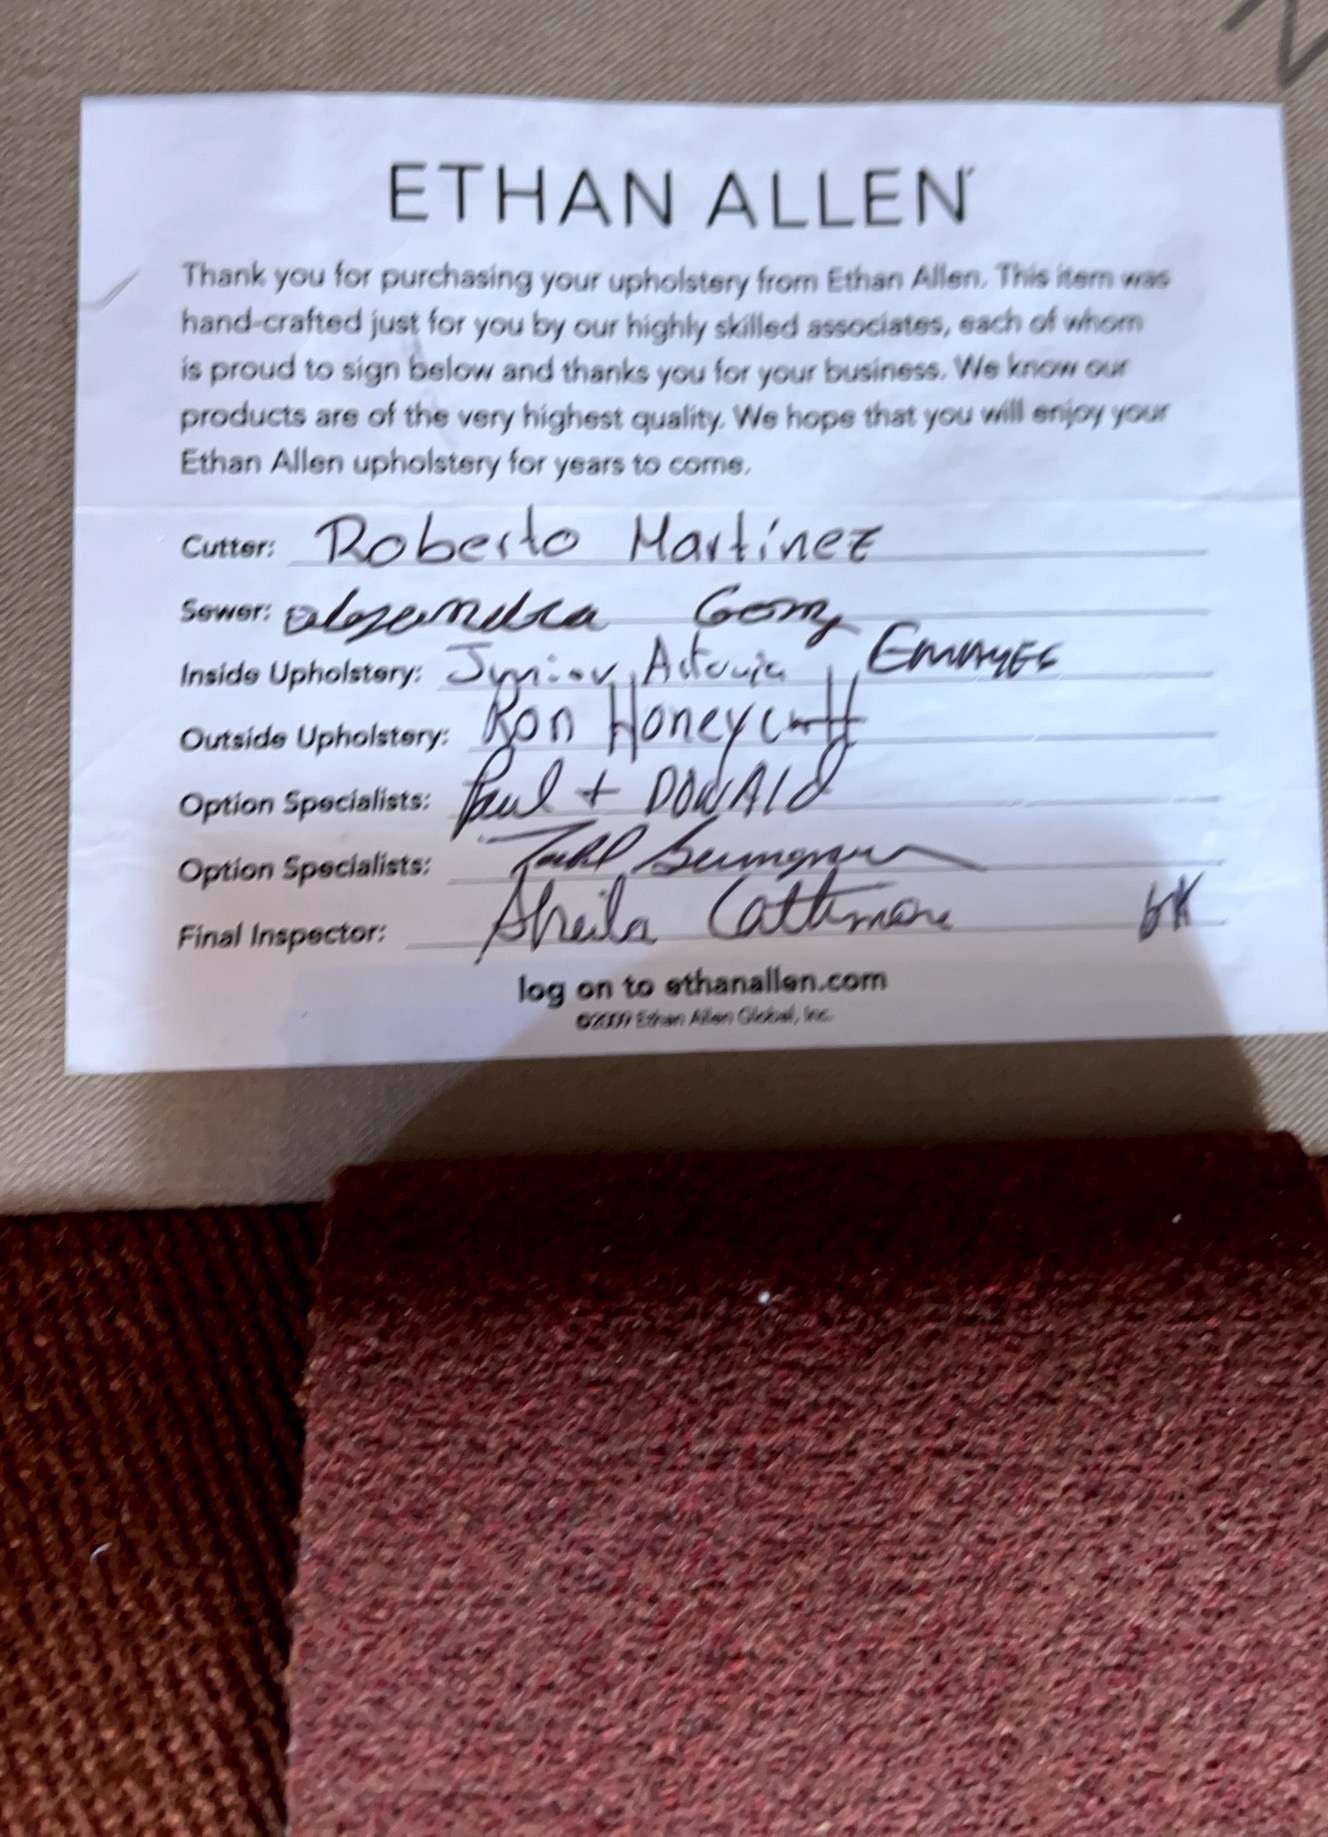 ETHAN ALLEN
Thank you for purchasing your upholstery from Ethan Allen. This item was
hand-crafted just for you by our highly skilled associates, each of whom
is proud to sign below and thanks you for your business. We know our
products are of the very highest quality. We hope that you will enjoy your
Ethan Allen upholstery for years to come.
Cutter: Roberto Martinez
Sewer:
Inside Upholstery: Junior
Outside Upholstery: Ron Honeycutt
Option Specialists: Paul + DONALD
Option Specialists:
Final Inspector: Sheila
log on to ethanallen.com
©2009 Ethan Allen Global, Inc.